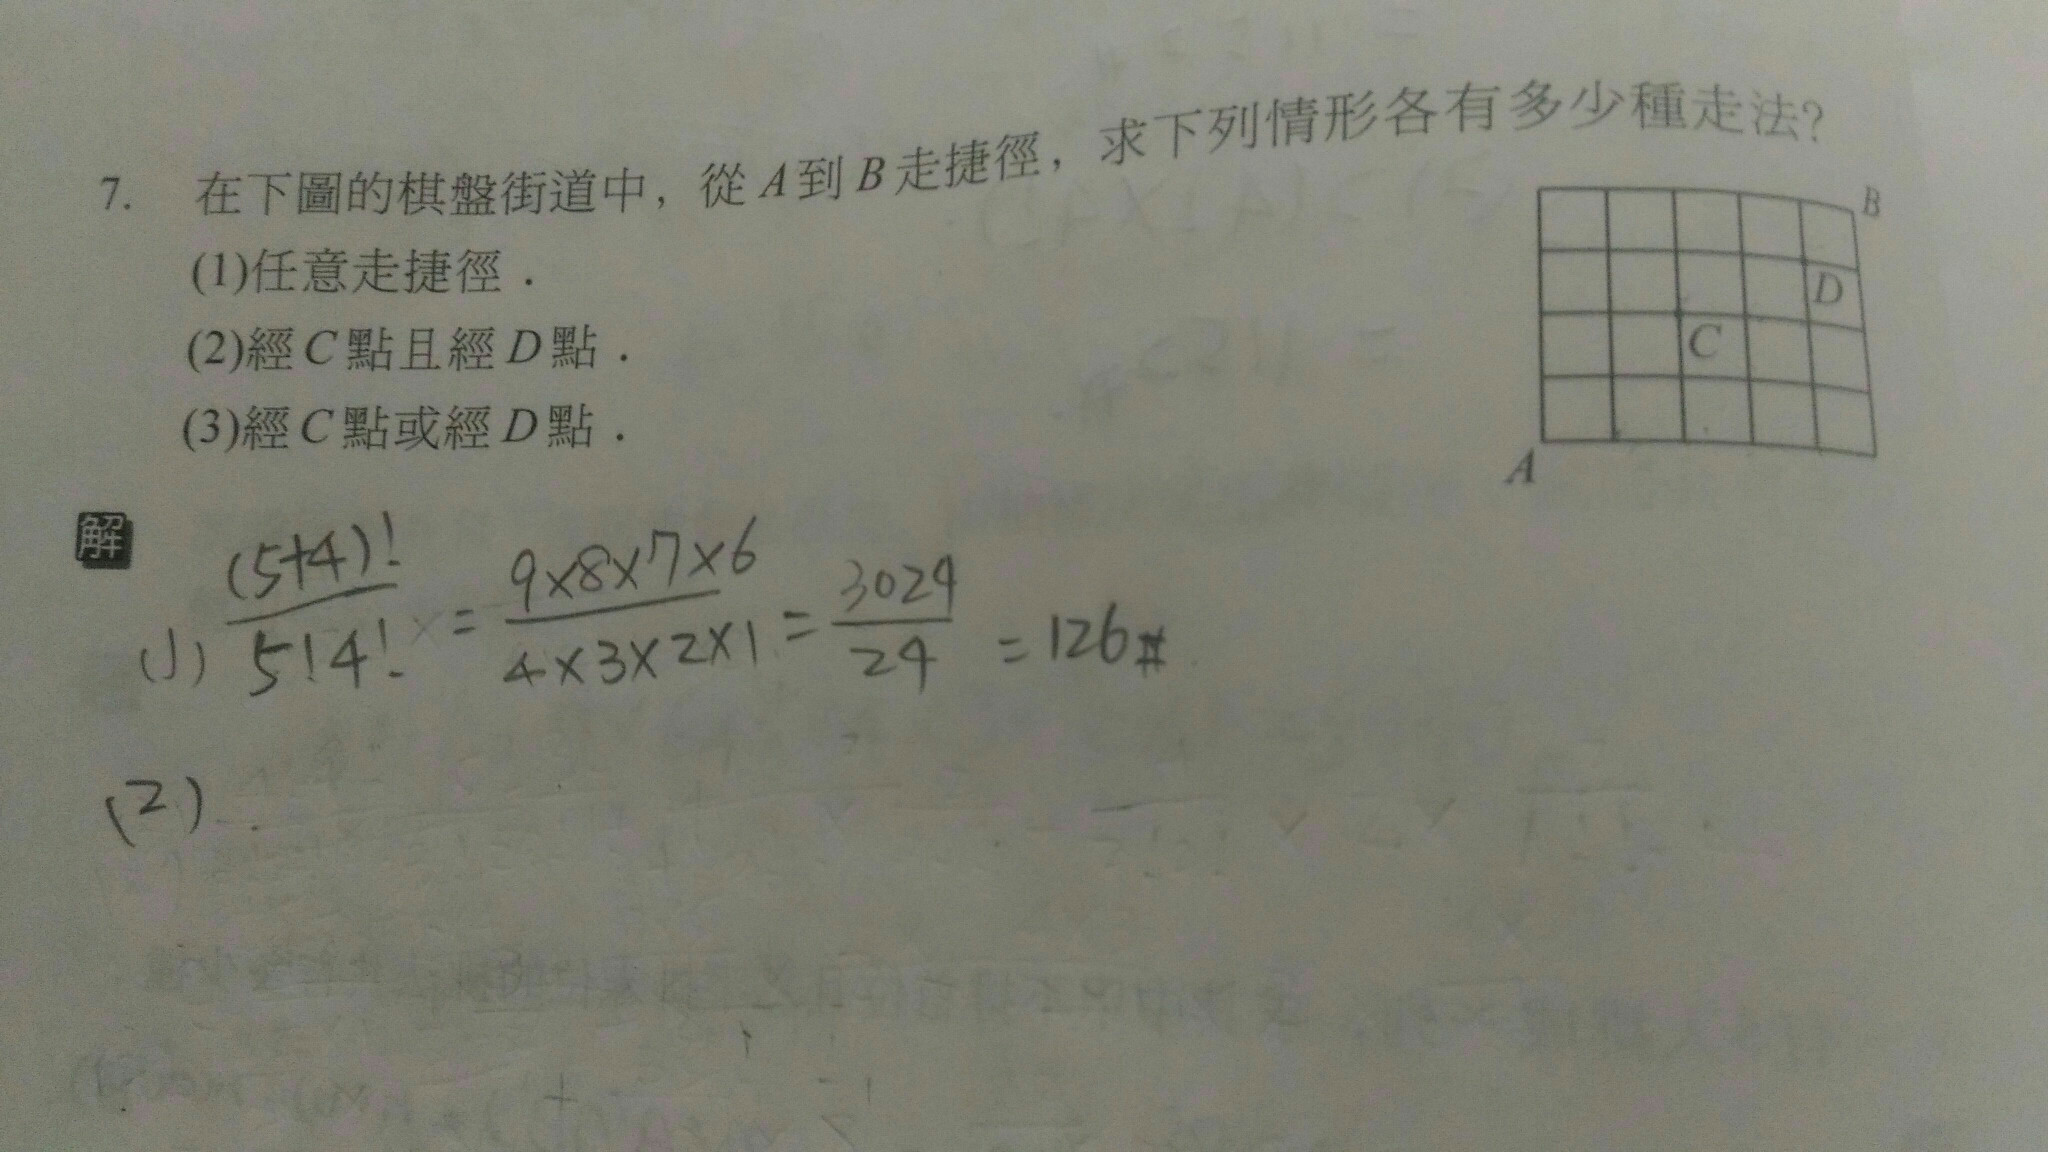 7. 在下圖的棋盤街道中，從A到B走捷徑，求下列情形各有多少種走法?
(1)任意走捷徑．
(2)經C點且經D點．
(3)經C點或經D點．
B
D
C
A
解
(1) (5+4)!/5!4! = 9×8×7×6/4×3×2×1 = 3024/24 = 126#
(2)